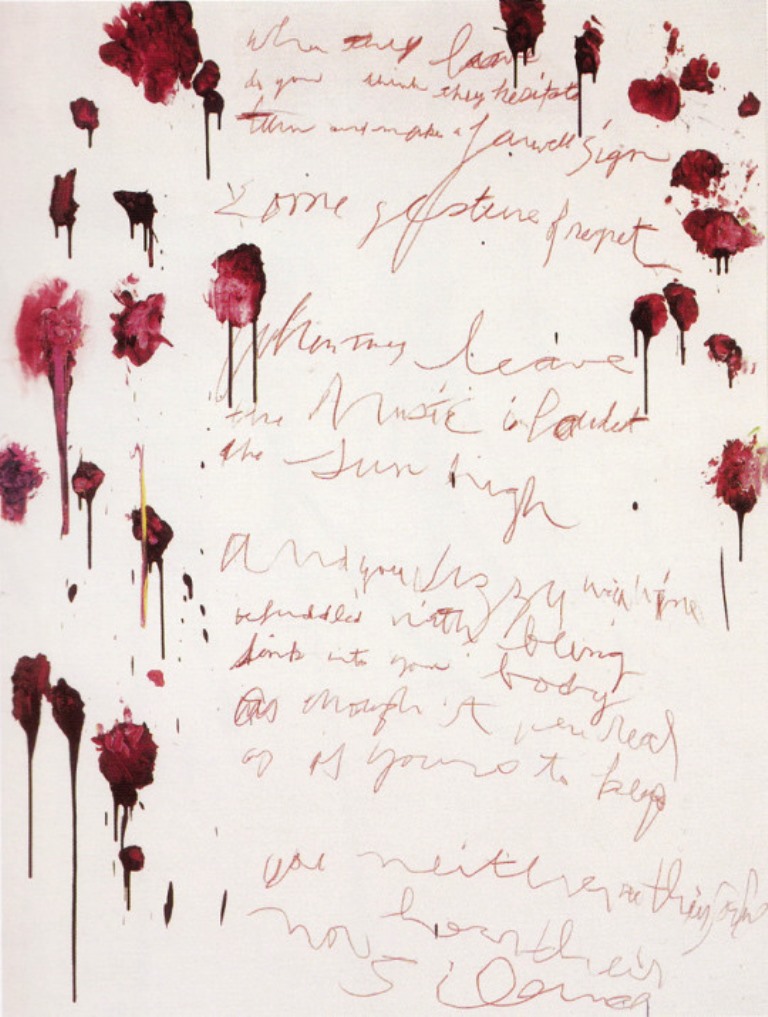 When they leave
do you think they hesitate
turn and make a farewell sign
some gesture of regret
When they leave
the Music is loudest
the sun high
And you dizzy with wine
befuddled with being
sink into your body
as though it were real
as if yours to keep
you neither see their
nor hear their
Silence